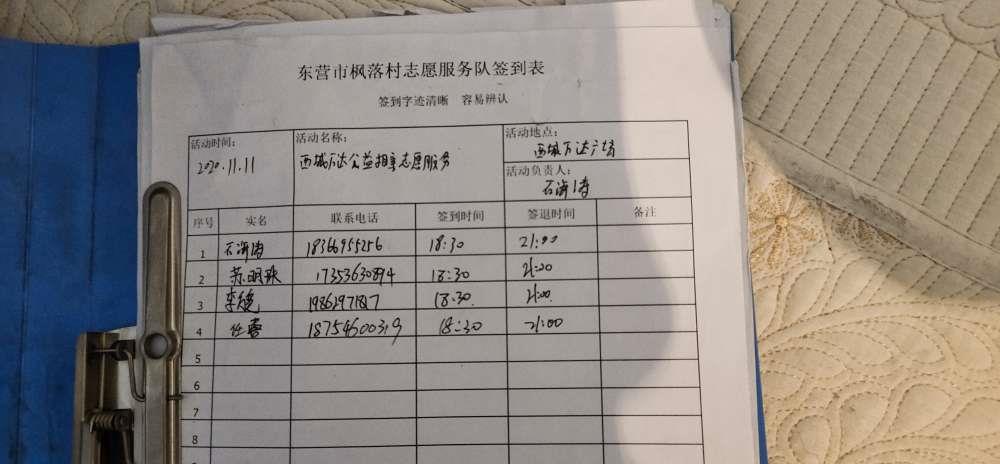 东营市枫落村志愿服务队签到表
签到字迹清晰 容易辨认
活动时间: 2020.11.11
活动名称: 西城万达公益相亲志愿服务
活动地点: 西城万达广场
活动负责人: 石海涛
序号 实名 联系电话 签到时间 签退时间 备注
1 石海涛 18366955256 18:30 21:00
2 苏明珠 17353630894 18:30 21:00
3 李 18:30 21:00
4 任蓉 18754600319 18:30 21:00
5
6
7
8